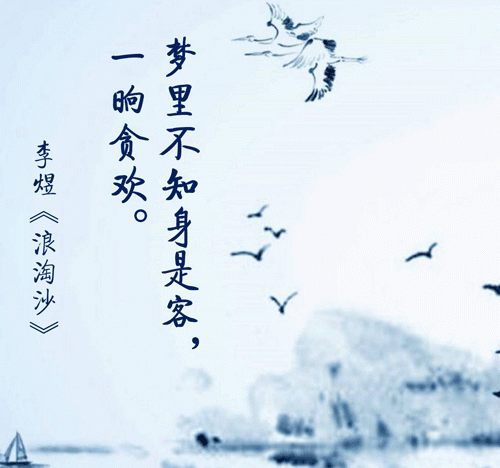 梦里不知身是客，
一晌贪欢。
李煜《浪淘沙》